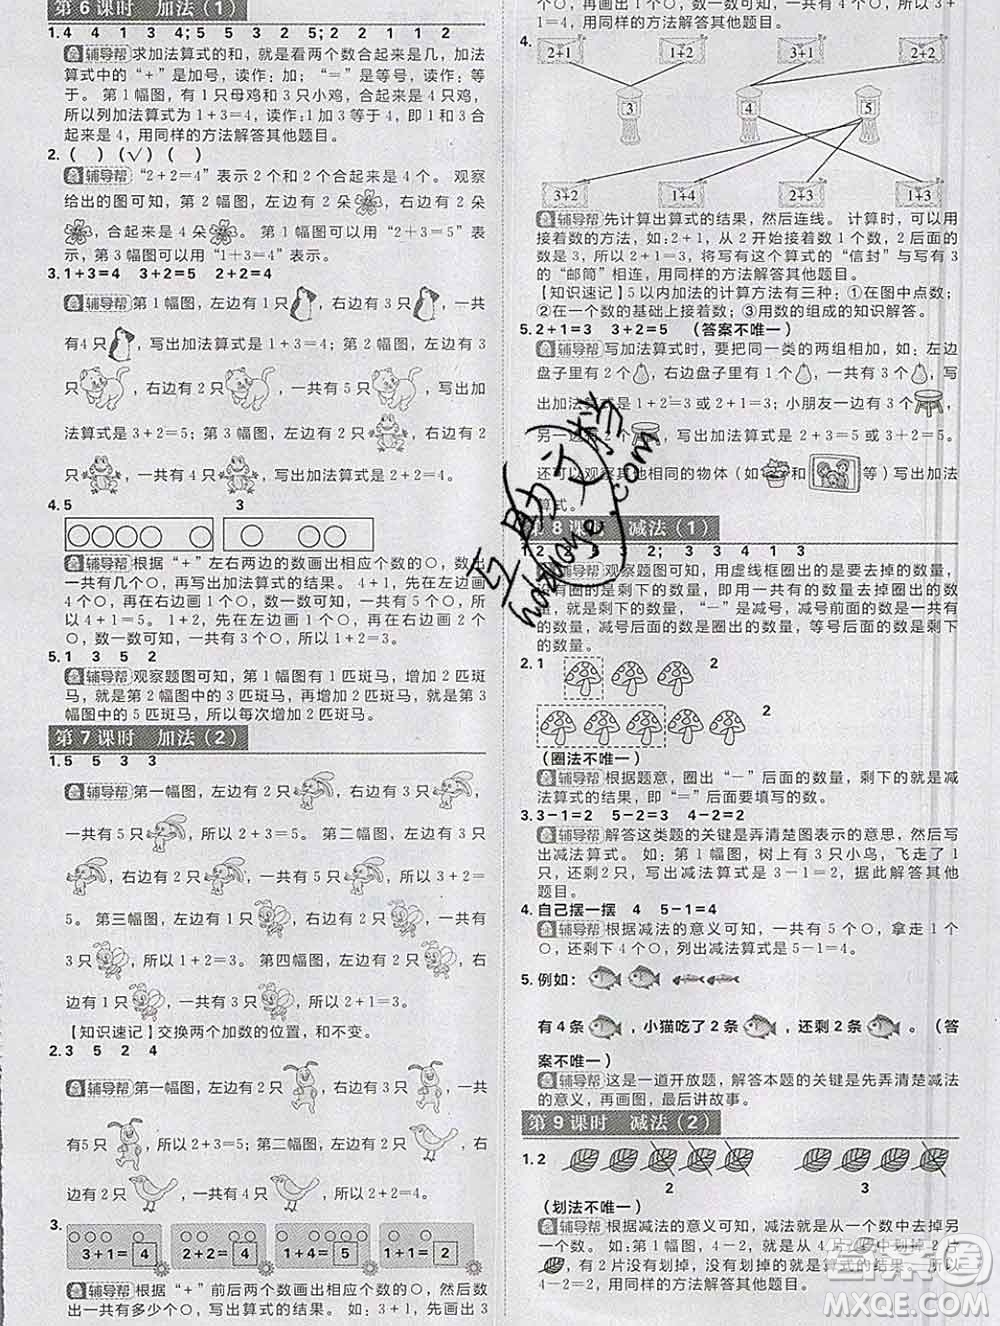 第6课时 加法（1）
1.4 4 1 3 4；5 5 3 2 5；2 2 1 1 2
辅导帮 求加法算式的和，就是看两个数合起来是几，加法
算式中的“+”是加号，读作：加；“=”是等号，读作：等
于。第1幅图，有1只母鸡和3只小鸡，合起来是4只鸡，
所以列加法算式为1+3=4，读作：1加3等于4，即1和3合
起来是4，用同样的方法解答其他题目。
2.（ ）（√）（ ）
辅导帮 “2+2=4”表示2个和2个合起来是4个。观察
给出的图可知，第2幅图，左边有2朵，右边有2朵
，合起来是4朵。第1幅图可以用“2+3=5”
表示，第3幅图可以用“1+3=4”表示。
3.1+3=4 3+2=5 2+2=4
辅导帮 第1幅图，左边有1只，右边有3只，一共
有4只，写出加法算式是1+3=4；第2幅图，左边有3
只，右边有2只，一共有5只，写出加
法算式是3+2=5；第3幅图，左边有2只，右边有2
只，一共有4只，写出加法算式是2+2=4。
4.5 3
辅导帮 根据“+”左右两边的数画出相应个数的○，数出一
共有几个○，再写出加法算式的结果。4+1，先在左边画
4个○，再在右边画1个○，数一数一共有5个○，所
以4+1=5。1+2，先在左边画1个○，再在右边画2个
○，数一数一共有3个○，所以1+2=3。
5.1 3 5 2
辅导帮 观察题图可知，第1幅图有1匹斑马，增加2匹斑
马，就是第2幅图中的3匹斑马，再增加2匹斑马，就是第3
幅图中的5匹斑马，所以每次增加2匹斑马。
第7课时 加法（2）
1.5 5 3 3
辅导帮 第一幅图，左边有2只，右边有3只，
一共有5只，所以2+3=5。第二幅图，左边有3只
，右边有2只，一共有5只，所以3+2=
5。第三幅图，左边有1只，右边有2只，一共有
3只，所以1+2=3。第四幅图，左边有2只，右
边有1只，一共有3只，所以2+1=3。
【知识速记】交换两个加数的位置，和不变。
2.3 5 2 4
辅导帮 第一幅图，左边有2只，右边有3只，一共
有5只，所以2+3=5；第二幅图，左边有2只，右
边有2只，一共有4只，所以2+2=4。
3.
3+1=4 2+2=4 1+4=5 1+1=2
辅导帮 根据“+”前后两个数画出相应个数的○，然后数出
一共有多少个○，写出算式的结果。如：3+1，先画出3
个○，再画出1个○，数一数，一共有4个○，所以3+1=
4，用同样的方法解答其他题目。
4.
2+1 1+2 3+1 2+2
3 4 5
3+2 1+4 2+3 1+3
辅导帮 先计算出算式的结果，然后连线。计算时，可以用
接着数的方法，如：2+1，从2开始接着数1个数，2后面的
数是3，所以2+1=3，将写有这个算式的“信封”与写有3
的“邮筒”相连，用同样的方法解答其他题目。
【知识速记】5以内加法的计算方法有三种：①在图中点数；
②在一个数的基础上接着数；③用数的组成的知识解答。
5.2+1=3 3+2=5 （答案不唯一）
辅导帮 写加法算式时，要把同一类的两组相加，如：左边
盘子里有2个，右边盘子里有1个，一共有3个，写
出加法算式是1+2=3或2+1=3；小朋友一边有2个，
另一边有3个，写出加法算式是2+3=5或3+2=5。
还可以观察其他相同的物体（如和等）写出加法
算式。
第8课时 减法（1）
辅导帮 观察题图可知，用虚线框圈出的是要去掉的数量，
没有圈的是剩下的数量，即用一共有的数量去掉圈出的数
量，就是剩下的数量，“－”是减号，减号前面的数是一共有
的数量，减号后面的数是圈出的数量，等号后面的数是剩下
的数量。
2.1 2
2
（圈法不唯一）
辅导帮 根据题意，圈出“－”后面的数量，剩下的就是减
法算式的结果，即“=”后面要填写的数。
3.3-1=2 5-2=3 4-2=2
辅导帮 解答这类题的关键是弄清楚图表示的意思，然后写
出减法算式。如：第1幅图，树上有3只小鸟，飞走了1
只，还剩2只，写出减法算式是3-1=2，据此解答其他
题目。
4.自己摆一摆 4 5-1=4
辅导帮 根据减法的意义可知，一共有5个○，拿走1个
○，还剩下4个○，列出减法算式是5-1=4。
5.例如：
有4条，小猫吃了2条，还剩2条。（答
案不唯一）
辅导帮 这是一道开放题，解答本题的关键是先弄清楚减法
的意义，再画图，最后讲故事。
第9课时 减法（2）
1.2
2 3
（划法不唯一）
辅导帮 根据减法的意义可知，减法就是从一个数中去掉另
一个数。如：第1幅图，就是从4片中划掉2片
，有2片没有划掉，没有划掉的就是结果，所以4-2=2，
用同样的方法解答其他题目。
互助文档
hdzuoye.com
答案圈
MXQE.COM